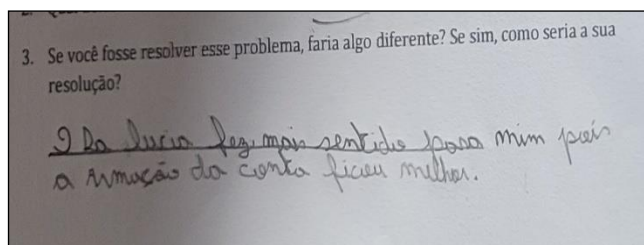 3. Se você fosse resolver esse problema, faria algo diferente? Se sim, como seria a sua
resolução?
O Da lucia fez mais sentido para mim pois
a armação da conta ficou melhor.